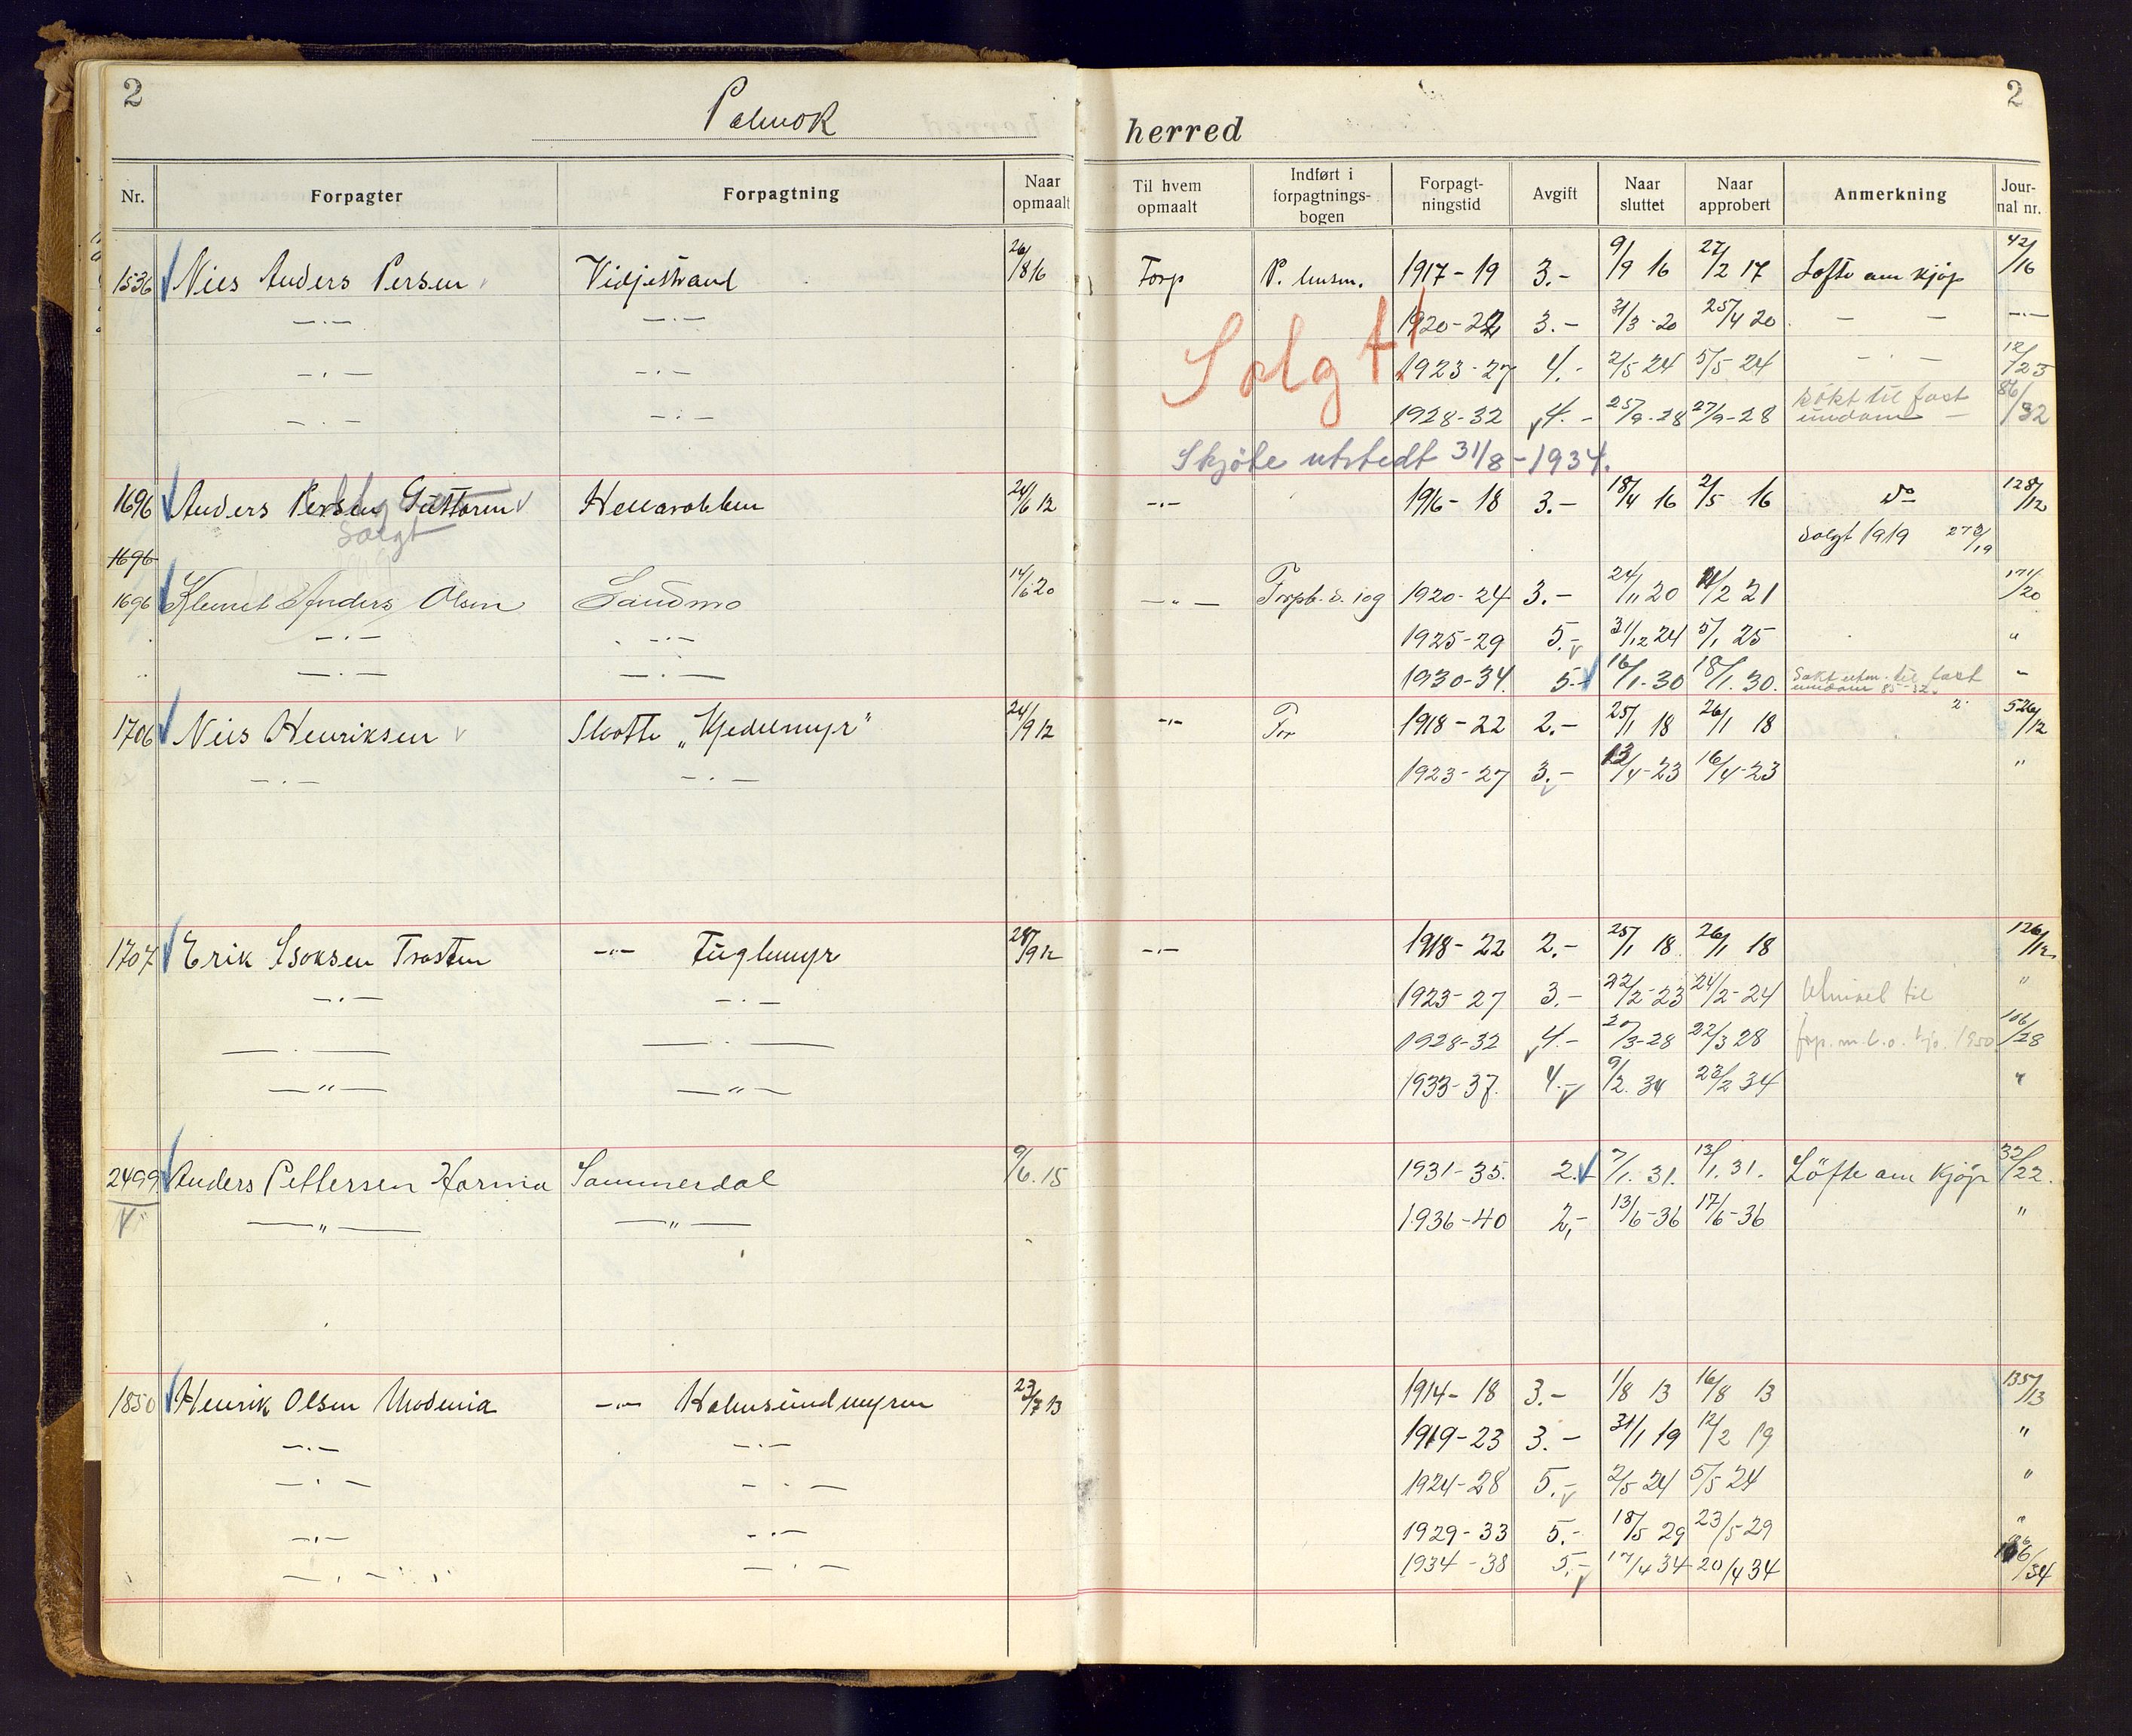 2
Polmok herred
2
Nr. Forpagter Forpagtning Naar opmaalt Til hvem opmaalt Indført i forpagtnings-bogen Forpagt-ningstid Avgift Naar sluttet Naar approbert Anmerkning Jour-nal nr.
1536 Niels Anders Persen Vidjestrand 26/8 16 Forp 1917-19 3.- 9/9 16 27/2 17 Løfte om kjøp 42/16
—·— —·— 1920-22 3.- 31/3-20 25/4 20 — — —·—
—·— —·— 1923-27 4.- 2/5 24 5/5 24 —·— 12/23
—·— —·— 1928-32 4.- 25/9-28 27/9-28 søkt til fast 86/32
Solgt!
Skjøte utstedt 31/8-1934.
1696 Anders Persen Guttorm Hellarokken 24/6 12 —·— 1916-18 3.- 18/4 16 2/5 16 do 128/12
Solgt
Solgt 1919 273/19
1696
1696 Klemet Anders Olsen Sandmo 14/6 20 —„— 1920-24 3.- 24/11 20 11/2 21 171/20
—·— —·— 1925-29 5.- 31/12 24 5/1 25 "
—·— —·— 1930-34. 5.- 16/1-30 18/1.30. til fast -
1706 Nils Henriksen Slaatte „Kjedelmyr" 24/9 12 —„— For 1918-22 2.- 25/1 18 26/1 18 526/12
—·— —·— 1923-27 3.- 13/4-23 16/4-23 "
1707 Erik Isaksen Trosten —„— Fuglemyr 28/9 12 —·— 1918-22 2.- 25/1 18 26/1 18 126/12
—·— —·— 1923-27 3.- 22/2-23 24/2-24 til "
—·— —·— 1928-32 4.- 20/3-28 22/3 28 1950 106/28
—„— —„— 1933-37. 4.- 9/2.34 23/2 34 "
2499 Anders Pettersen Harma Sommerdal 9/6.15 1931-35. 2. 7/1.31. 13/1.31. Løfte om kjøp 32/22.
—„— —„— 1936-40 2,- 13/6-36 17/6-36 "
1850 Henrik Olsen Modenia —„— Holmsundmyren 23/7 13 1914-18 3.- 1/8 13 16/8 13 135/13
—·— —·— 1919-23 3.- 31/1 19 12/2 19 "
—·— —·— 1924-28 5.- 2/5 24 5/5 24 "
—·— —·— 1929-33 5.- 18/5 29 23/5-29 "
—·— —·— 1934-38 5,- 17/4 34 20/4 34 166/34